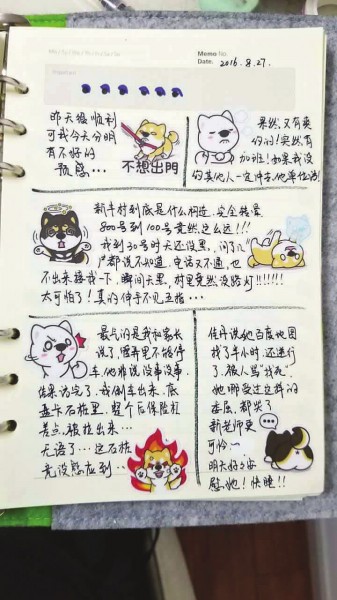 Memo No.
Date. 2016.8.27.
昨天很顺利
可我今天分明
有不好的
预感…
不想出門
果然,又有爽
约的!突然有
加班!如果我没
新丰村到底是什么构造,完全转晕
800号到100号竟然这么远!!!
我到30号时天还没黑,问了几
户都说不知道,电话又不通,也
不出来接我一下,瞬间天黑,村里竟然没路灯!!!!!!
太可怕了!真的伸手不见五指…
最气的是我和家长
说了,哪里不能停
车,他非说没事没事.
结果访完了,我倒车出来,底
盘卡石柱里,整个后保险杠
差点被拉出来…
无语了…这石柱
竟没感应到…
佳丹说她百度地图
找了半小时,还迷了
,被人骂"找死",
她哪受过这样的
委屈,都哭了
新老师更
可怜~
明天好好安
慰她!快睡!!